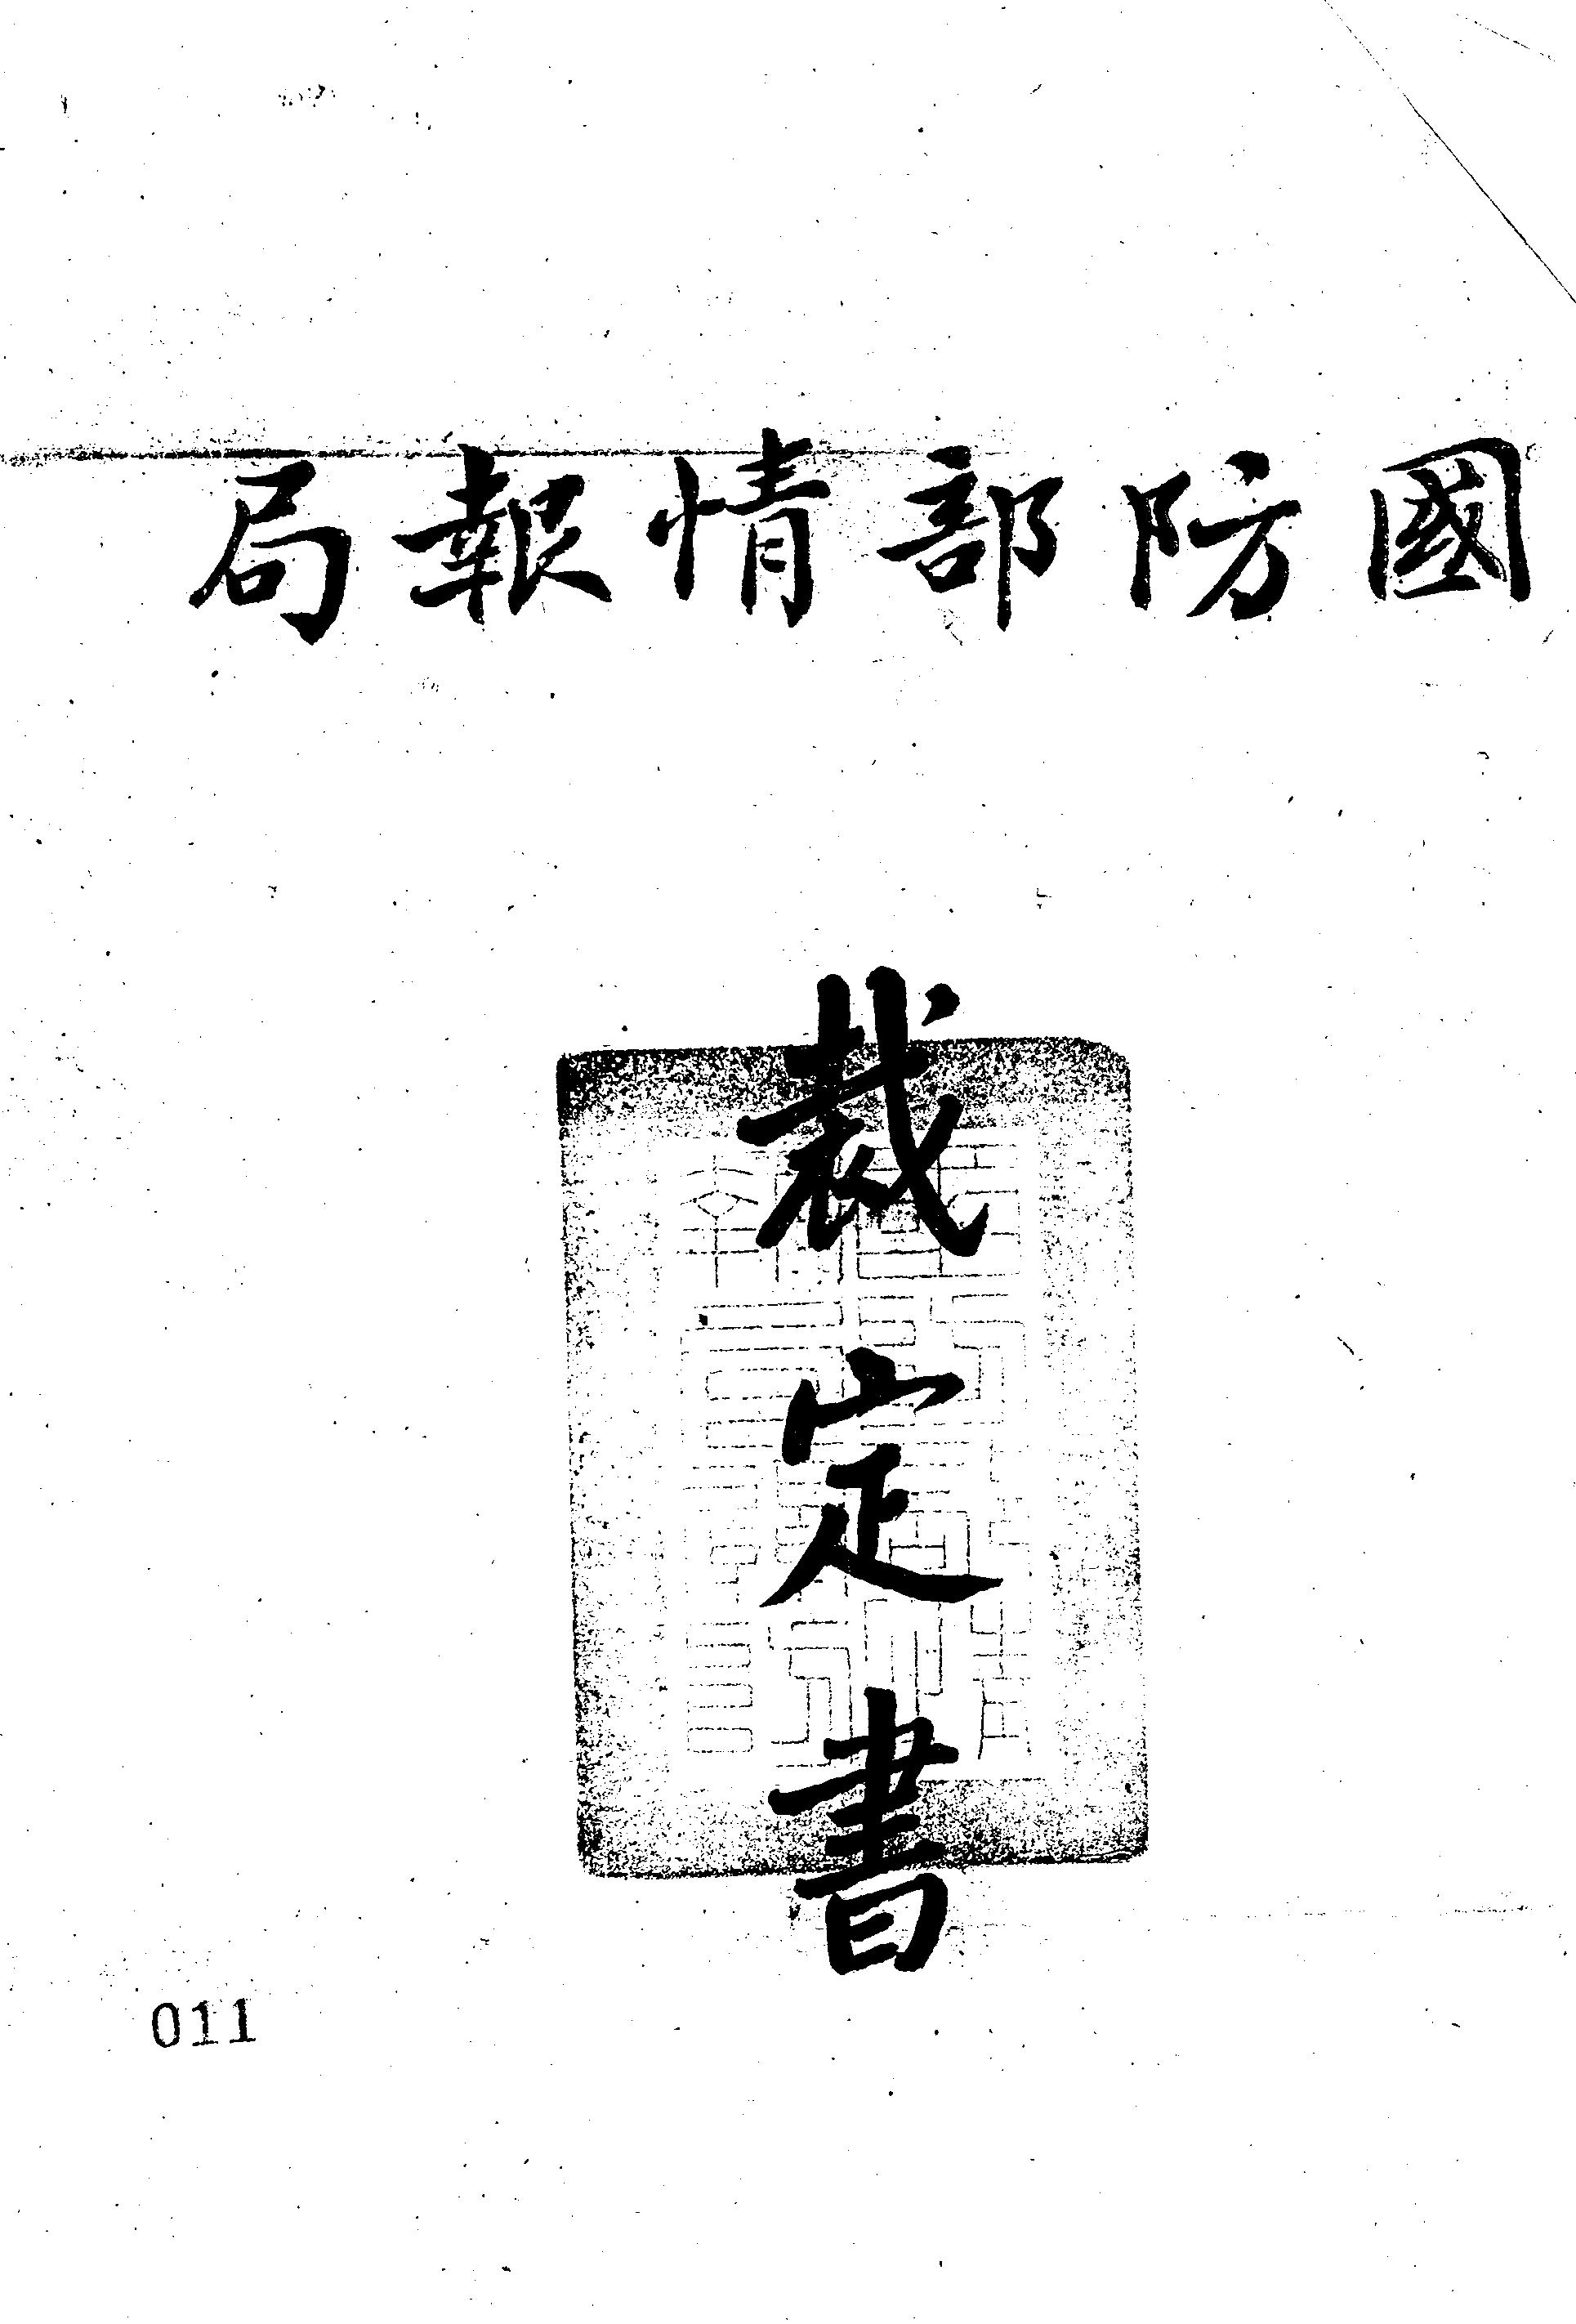 國防部情報局
裁定書
011